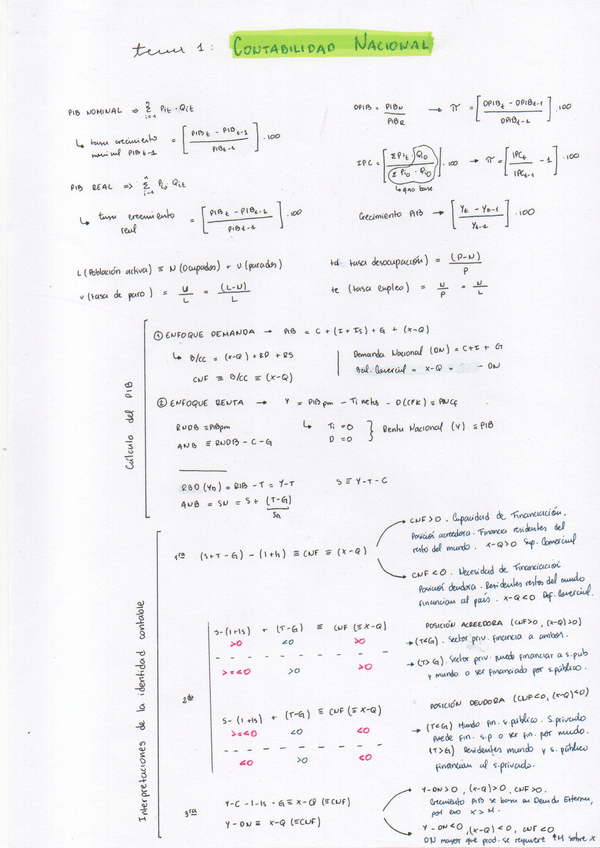 tema 1: CONTABILIDAD NACIONAL
PIB NOMINAL ⇒ Σ Pit · Qit
i=1
↳ tasa crecimiento nominal PIB t-1 = [PIBt - PIBt-1 / PIBt-1] · 100
PIB REAL ⇒ Σ Pio Qit
i=1
↳ tasa crecimiento real = [PIBt - PIBt-1 / PIBt-1] · 100
DPIB = PIBN / PIBR → π = [DPIBt - DPIBt-1 / DPIBt-1] · 100
IPC = [ΣPit · Qio / ΣPio · Qio] · 100 → π = [IPCt / IPCt-1 - 1] · 100
↳ año base
Crecimiento PIB → [Yt - Yt-1 / Yt-1] · 100
L (Población activa) ≡ N (Ocupados) + U (parados)
u (tasa de paro) = U / L = (L-N) / L
td tasa desocupación) = (P-N) / P
te (tasa empleo) = N / P = N / L
Cálculo del PIB
① ENFOQUE DEMANDA → PIB = C + (I + Is) + G + (X-Q)
↳ B/CC = (X-Q) + RD + RS
CNF ≡ B/CC ≡ (X-Q)
Demanda Nacional (DN) = C + I + G
Bal. Comercial = X-Q = - DN
② ENFOQUE RENTA → Y = PIBpm - Ti netos - D(CFK) = PNCf
RNDB = PIBpm
ANB ≡ RNDB - C - G
↳ Ti = 0
D = 0 } Renta Nacional (Y) = PIB
RBD (YD) = RIB - T = Y-T
S ≡ Y-T-C
ANB = SN = S + (T-G)
SG
Interpretaciones de la identidad contable
1ra (S+T-G) - (I+Is) ≡ CNF ≡ (X-Q)
CNF>0. Capacidad de Financiación.
Posición acreedora. Financia residentes del
resto del mundo. X-Q>0 Sup. Comercial
CNF<0. Necesidad de Financiación
Posición deudora. Residentes restos del mundo
financian al país. X-Q<0 Def. Comercial.
2da
S-(I+Is) + (T-G) ≡ CNF (≡X-Q)
>0 <0 >0
>=<0 >0 >0
POSICIÓN ACREEDORA (CNF>0, (X-Q)>0)
→ (T<G). Sector priv. financia a ambos.
→ (T>G). Sector priv. puede financiar a s.pub
y mundo o ser financiado por s.público.
S-(I+Is) + (T-G) ≡ CNF (≡X-Q)
>=<0 <0 <0
<0 >0 <0
POSICIÓN DEUDORA (CNF<0, (X-Q)<0)
→ (T<G) Mundo fin. s.público. S.privado
puede fin. s.p o ser fin. por mundo.
(T>G) Residentes mundo y s. público
financian al s.privado.
3ra Y-C-I-Is-G ≡ X-Q (≡CNF)
Y-DN ≡ X-Q (≡CNF)
Y-DN>0, (X-Q)>0, CNF>0.
Crecimiento PIB se basa en Demanda Externa,
por eso X>M.
Y-DN<0, (X-Q)<0, CNF<0
DN mayor que prod. se requiere ↑M sobre X